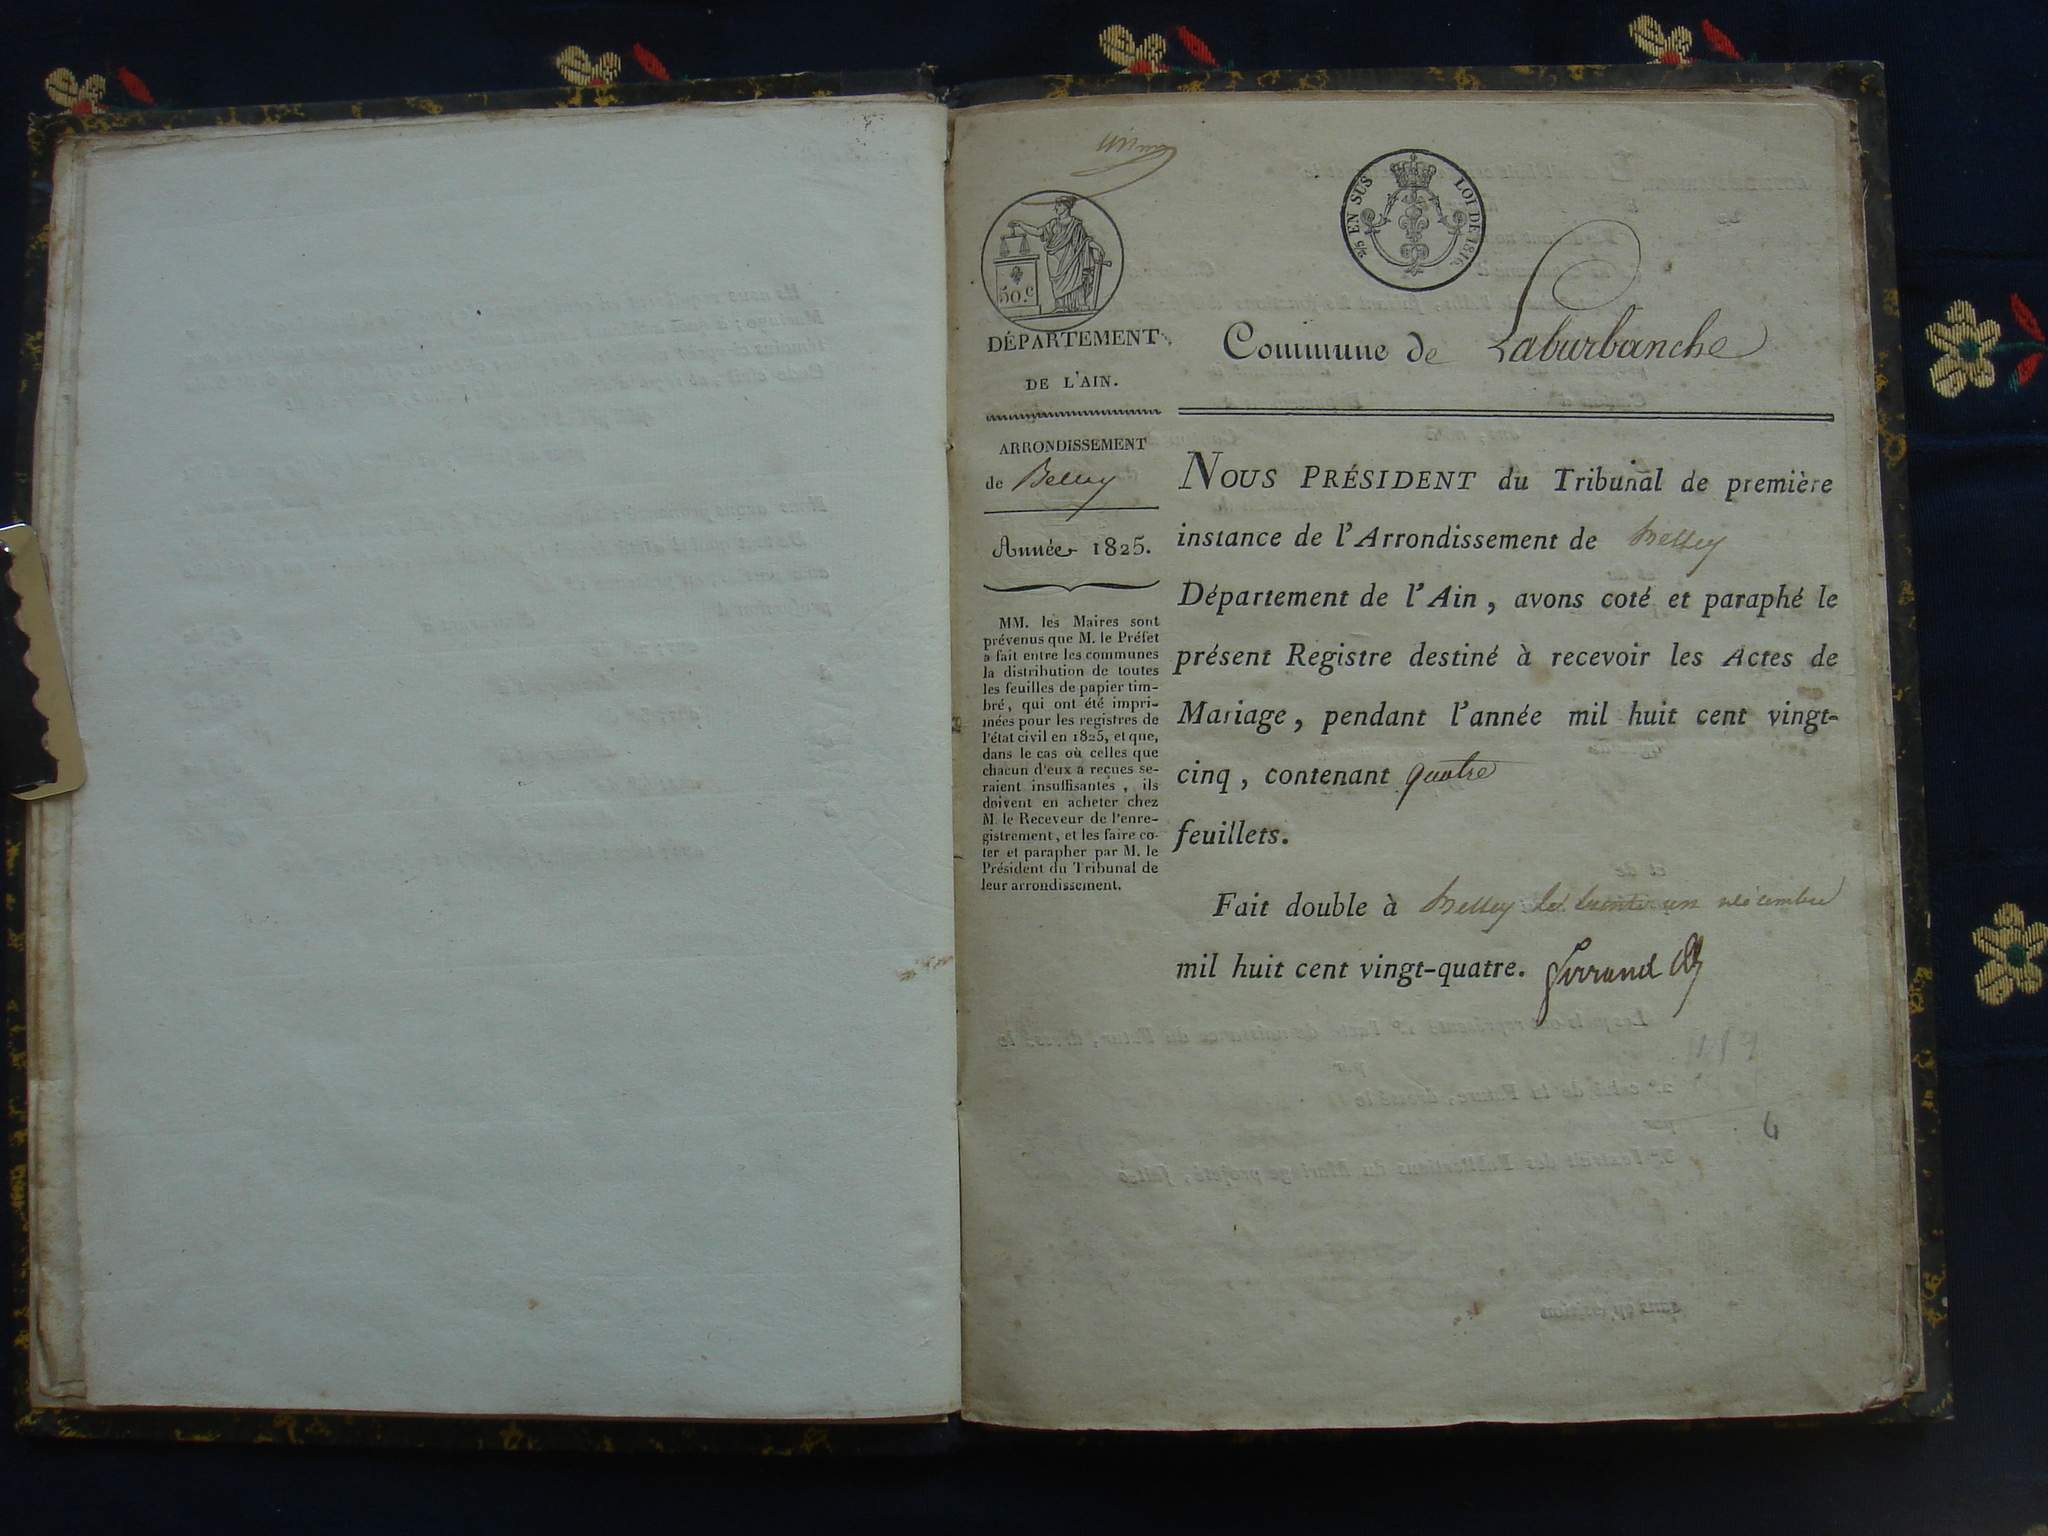 25 EN SUS LOI DE 1816.
50.c
DÉPARTEMENT
DE L'AIN.
Commune de Laburbanche
ARRONDISSEMENT
de Belley
Année 1825.
MM. les Maires sont
prévenus que M. le Préfet
a fait entre les communes
la distribution de toutes
les feuilles de papier tim-
bré, qui ont été impri-
mées pour les registres de
l'état civil en 1825, et que,
dans le cas où celles que
chacun d'eux a reçues se-
raient insuffisantes, ils
doivent en acheter chez
M. le Receveur de l'enre-
gistrement, et les faire co-
ter et parapher par M. le
Président du Tribunal de
leur arrondissement.
NOUS PRÉSIDENT du Tribunal de première
instance de l'Arrondissement de Belley
Département de l'Ain, avons coté et paraphé le
présent Registre destiné à recevoir les Actes de
Mariage, pendant l'année mil huit cent vingt-
cinq, contenant quatre
feuillets.
Fait double à Belley le trente un décembre
mil huit cent vingt-quatre.